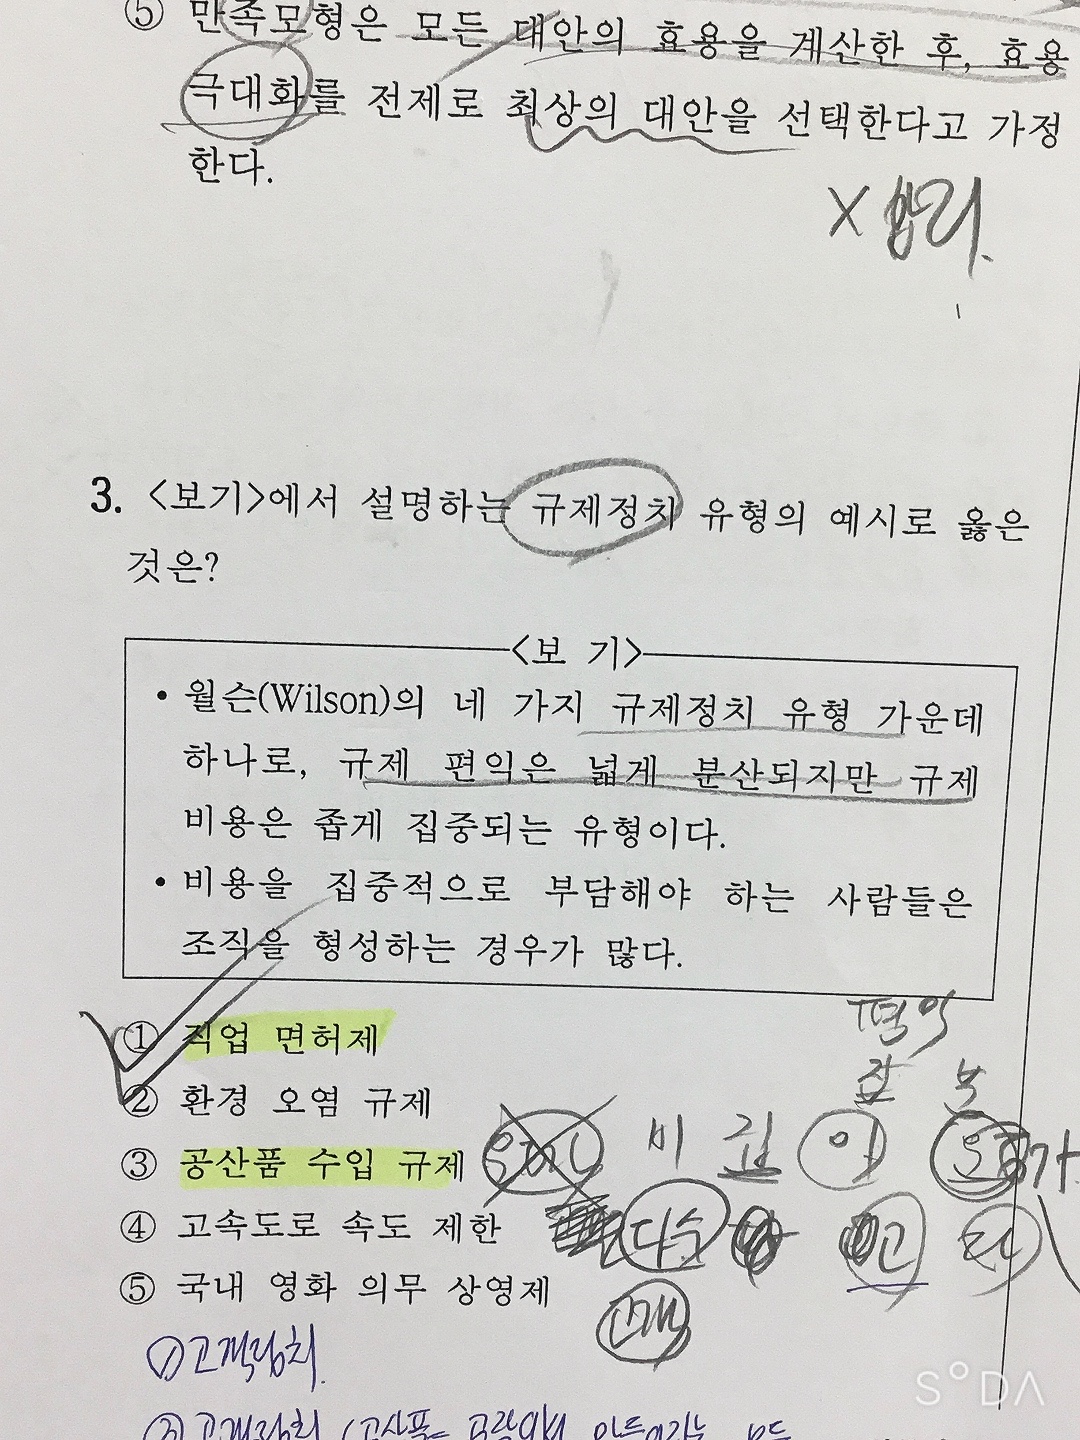 ⑤ 만족모형은 모든 대안의 효용을 계산한 후, 효용
극대화를 전제로 최상의 대안을 선택한다고 가정
한다.
X 합리.
3. <보기>에서 설명하는 규제정치 유형의 예시로 옳은
것은?
<보 기>
• 윌슨(Wilson)의 네 가지 규제정치 유형 가운데
하나로, 규제 편익은 넓게 분산되지만 규제
비용은 좁게 집중되는 유형이다.
• 비용을 집중적으로 부담해야 하는 사람들은
조직을 형성하는 경우가 많다.
① 직업 면허제
② 환경 오염 규제
③ 공산품 수입 규제
④ 고속도로 속도 제한
⑤ 국내 영화 의무 상영제
편익
집 분
비 집 이 운 가
다수 고 대
고객
① 고객정치.
③ 고객정치
SODA